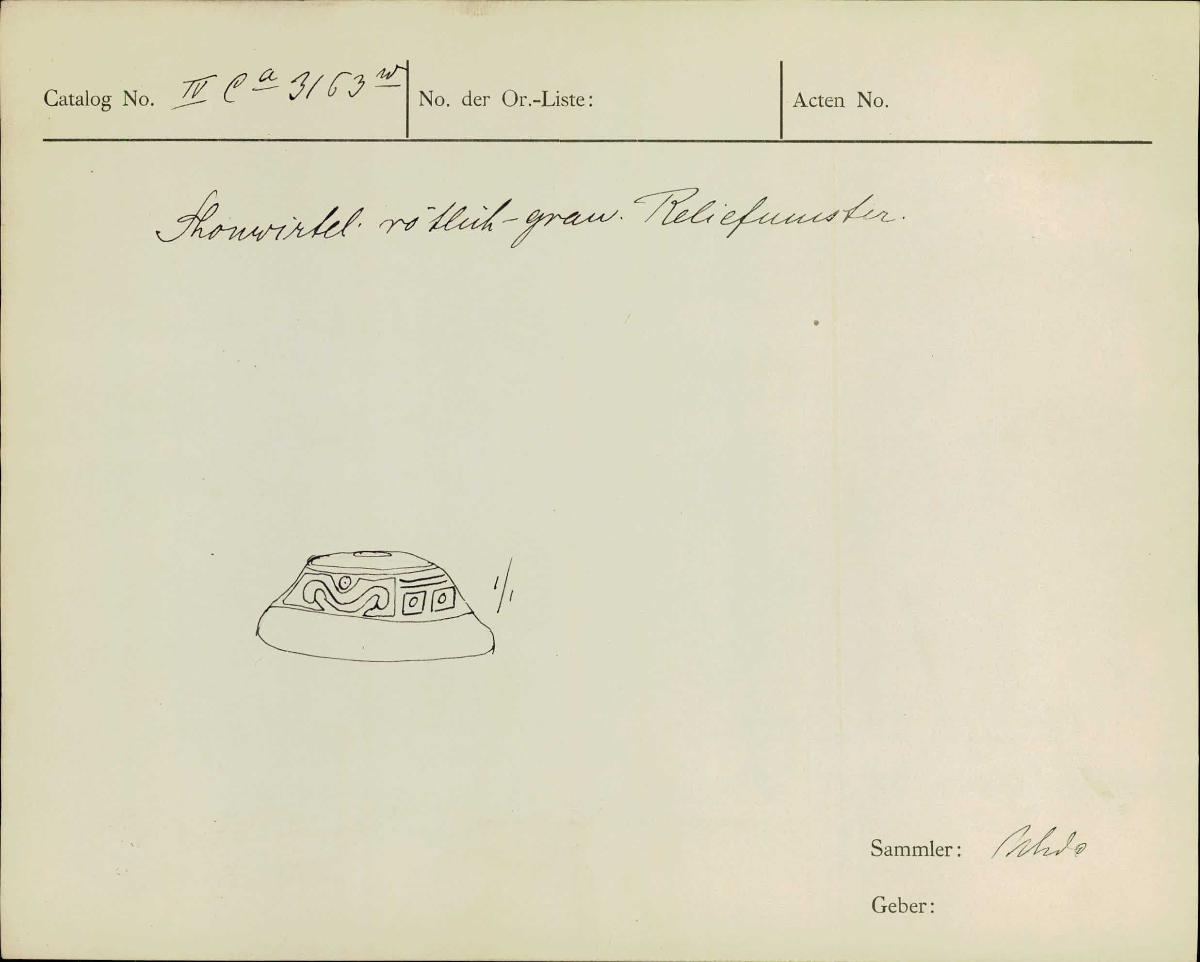 Catalog No. IV Ca 3163 w No. der Or.-Liste: Acten No.
Thonwirtel. rötlich-grau. Reliefmuster.
1/1
Sammler: Uhde
Geber: